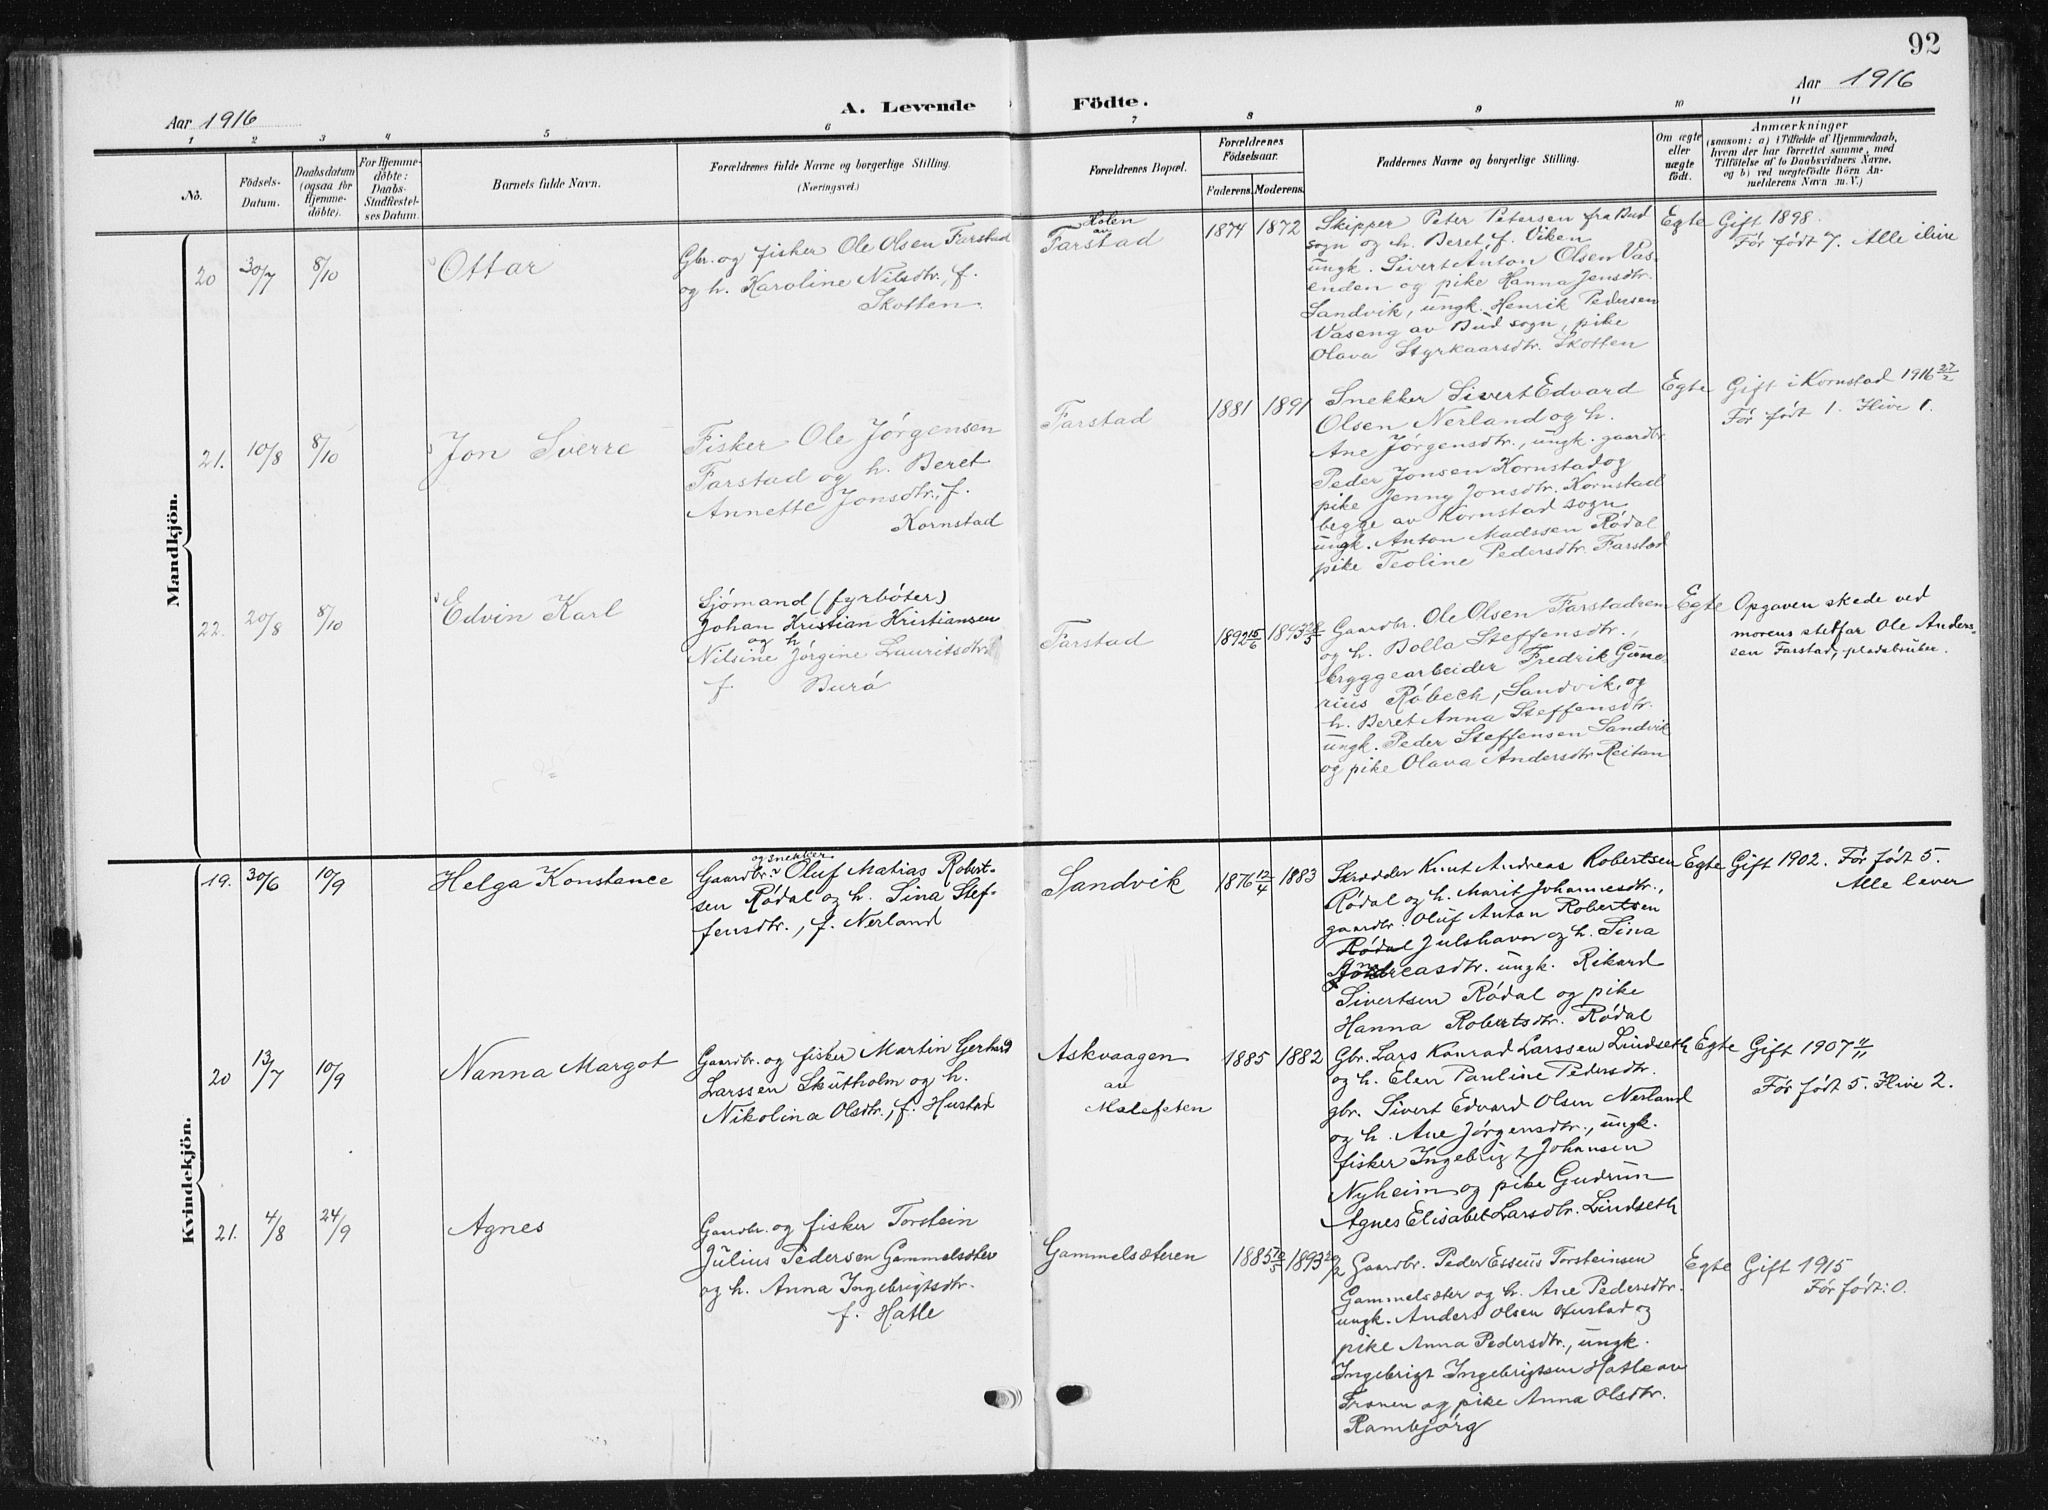 92
Aar 1916
A. Levende Födte.
Aar 1916
1 2 3 4 5 6 7 8 9 10 11
No.
Födsels-
Datum.
Daabsdatum
(ogsaa for
Hjemme-
döbte).
For Hjemme-
döbte:
Daabs-
Stadfæstel-
ses Datum.
Barnets fulde Navn.
Forældrenes fulde Navne og borgerlige Stilling.
(Næringsvei.)
Forældrenes Bopæl.
Forældrenes
Födselsaar.
Faderens. Moderens.
Faddernes Navne og borgerlige Stilling.
Om ægte
eller
uægte
födt.
Anmærkninger
(saasom: a) i Tilfælde af Hjemmedaab,
hvem der har forrettet samme, med
Tilföielse af to Daabsvidners Navne,
og b) ved uægtefödte Börn An-
melderens Navn m. V.)
Mandkjön.
20 30/7 8/10
Ottar
Gbr. og fisker Ole Olsen Farstad
og h. Karoline Nilsdtr., f.
Skotten.
Holen
av
Farstad
1874 1872
Skipper Peter Petersen fra Bud
sogn og h. Beret f. Viken
ungk. Sivert Anton Olsen Vas-
enden og pike Hanna Jensdtr.
Sandvik, ungk. Henrik Pedersen
Vaseng av Bud sogn, pike
Olava Styrkaarsdtr. Skotten
Egte
Gift 1898.
Før født 7. Alle ilive
21. 10/8 8/10
Jon Sverre
Fisker Ole Jørgensen
Farstad og h. Beret
Annette Jonsdtr., f.
Kornstad
Farstad
1881 1891
Snekker Sivert Edvard
Olsen Nerland og h.
Ane Jørgensdtr., ungk. gaardbr.
Peder Jonsen Kornstad og
pike Jenny Jonsdtr. Kornstad
begge av Kornstad sogn
ungk. Anton Madssen Rødal
pike Teoline Pedersdtr. Farstad
Egte
Gift i Kornstad 1916 27/2
Før født 1. Ilive 1.
22. 20/8 8/10
Edvin Karl
Sjømand (fyrbøter)
Johan Kristian Kristiansen
og h.
Nilsine Jørgine Lauritsdtr.
f. Burø
Farstad
1892 15/6 1893 28/5
Gaardbr. Ole Olsen Farstadrem
og h. Bolla Steffensdtr.,
bryggearbeider Fredrik Gune-
rius Røbech, Sandvik, og
h. Beret Anna Steffensdtr.
ungk. Peder Steffensen Sandvik
og pike Olava Andersdtr. Reitan
Egte
Opgaven skede ved
morens stetfar Ole Anders-
sen Farstad, pladsbruker.
Kvindekjön.
19. 30/6 10/9
Helga Konstance
og snekker
Gaardbr. Oluf Matias Robert-
sen Rødal og h. Sina Stef-
fensdtr., f. Nerland
Sandvik
1876 12/4 1883
Skrædder Knut Andreas Robertsen
Rødal og h. Marit Johannesdtr.,
gaardbr. Oluf Anton Robertsen
Rødal Julshavn og h. Sina
Andreasdtr. ungk. Rikard
Sivertsen Rødal og pike
Hanna Robertsdtr. Rødal
Egte
Gift 1902. Før født 5.
Alle lever
20 13/7 10/9
Nanna Margot
Gaardbr. og fisker Martin Gerhard
Larssen Skutholm og h.
Nikolina Olsdtr., f. Hustad
Askvaagen
av
Malefeten
1885 1882
Gbr. Lars Konrad Larssen Lindseth
og h. Elen Pauline Pedersdtr.
gbr. Sivert Edvard Olsen Nerland
og h. Ane Jørgensdtr., ungk.
fisker Ingebrigt Johansen
Nyheim og pike Gudrun
Agnes Elisabet Larsdtr. Lindseth
Egte
Gift 1907 4/11
Før født 5. Ilive 2.
21. 4/8 24/9
Agnes
Gaardbr. og fisker Torstein
Julius Pedersen Gammelsæter
og h. Anna Ingebrigtsdtr.
f. Hatle
Gammelsæteren
1885 10/5 1893 22/2
Gaardbr. Peder Essius Torsteinsen
Gammelsæter og h. Ane Pedersdtr.
ungk. Anders Olsen Hustad og
pike Anna Pedersdtr., ungk.
Ingebrigt Ingebrigtsen Hatle av
Frænen og pike Anna Olsdtr.
Rambjørg
Egte
Gift 1915
Før født: 0.